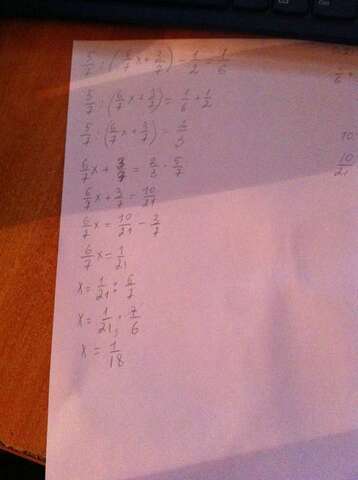 5/7 : (6/7 x + 3/7) - 1/2 = 1/6
5/7 : (6/7 x + 3/7) = 1/6 + 1/2
5/7 : (6/7 x + 3/7) = 2/3
6/7 x + 3/7 = 2/3 · 5/7
6/7 x + 3/7 = 10/21
6/7 x = 10/21 - 3/7
6/7 x = 1/21
x = 1/21 : 6/7
x = 1/21 · 7/6
x = 1/18
10
10/21